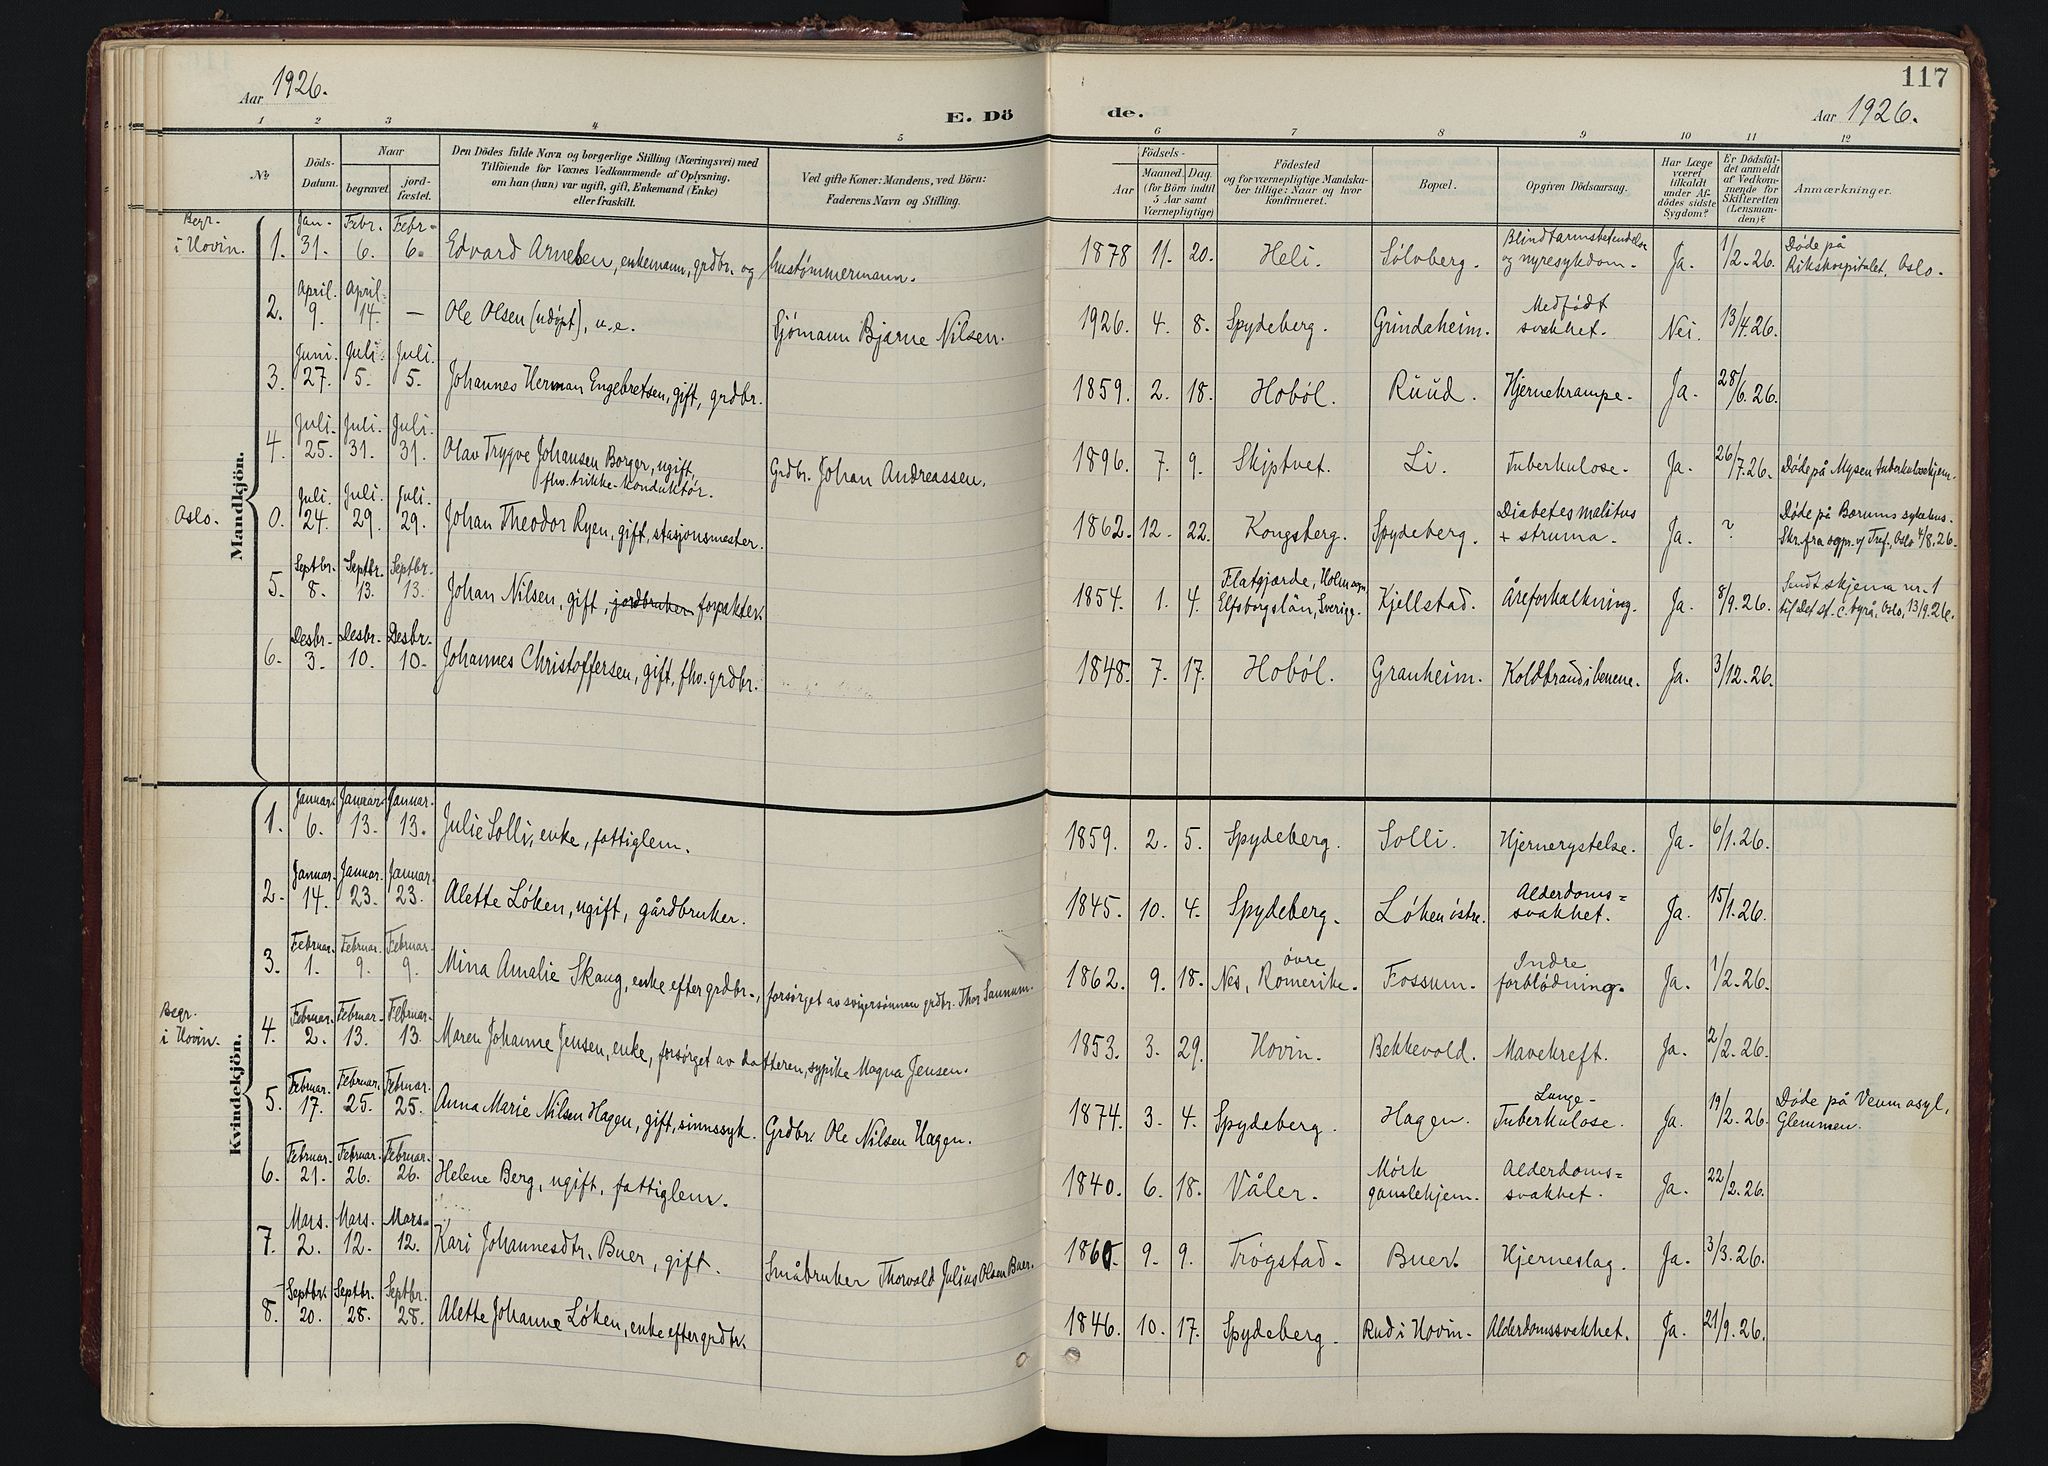 Aar 1926.
E. Dö
de.
117
Aar 1926.
1 2 3 4 5 6 7 8 9 10 11 12
No
Döds-Datum.
Naar
begravet.
jord-fæstet.
Den Dödes fulde Navn og borgerlige Stilling (Næringsvei) med
Tilföiende for Voxnes Vedkommende af Oplysning,
om han (hun) var ugift, gift, Enkemand (Enke)
eller fraskilt.
Ved gifte Koner: Mandens, ved Börn:
Faderens Navn og Stilling.
Födsels-
Aar
Maaned. Dag.
(for Börn indtil
5 Aar samt
Værnepligtige)
Födested
og for værnepligtige Mandska-
ber tillige: Naar og hvor
konfirmeret.
Bopæl.
Opgiven Dödsaarsag.
Har Læge
været
tilkaldt
under Af-
dödes sidste
Sygdom?
Er Dödsfal-
det anmeldt
af Vedkom-
mende for
Skifteretten
(Lensman-
den)?
Anmærkninger.
Mandkjön.
Begr. i Hovin. 1. Jan. 31. Febr. 6. Febr. 6. Edvard Arnesen, enkemann, grdbr. og hustømmermann. 1878 11. 20. Heli. Sølvberg. Blindtarmsbetendelse og nyresykdom. Ja. 1/2-26. Døde på Rikshospitalet, Oslo.
2. April. 9. April. 14. — Ole Olsen (udøpt), u.e. Sjømann Bjarne Nilsen. 1926. 4. 8. Spydeberg. Grindaheim. Medfødt svakhet. Nei. 13/4.26.
3. Juni. 27. Juli. 5. Juli. 5. Johannes Herman Engebretsen, gift, grdbr. 1859. 2. 18. Hobøl. Ruud. Hjernekrampe. Ja. 28/6.26.
4. Juli. 25. Juli. 31. Juli. 31. Olav Trygve Johansen Borger, ugift, fhv. trikke-konduktør. Grdbr. Johan Andreassen. 1896. 7. 9. Skiptvet. Li. Tuberkulose. Ja. 26/7.26. Døde på Mysen tuberkulosehjem.
Oslo. 0. Juli. 24. Juli. 29. Juli. 29. Johan Theodor Ryen, gift, stasjonsmester. 1862. 12. 22. Kongsberg. Spydeberg. Diabetes malitus + struma. Ja. ? Døde på Bærums sykehus. Skr. fra sogpr. v/ Tref., Oslo 4/8.26.
5. Septbr. 8. Septbr. 13. Septbr. 13. Johan Nilsen, gift, jordbruker forpakter. 1854. 1. 4. Flatgjærde, Holm sogn Elfsborgslän, Sverige. Kjellstad. Åreforkalkning. Ja. 8/9.26. Sendt skjema nr. 1 til det st. c. byrå, Oslo, 13/9.26.
6. Desbr. 3. Desbr. 10. Desbr. 10. Johannes Christoffersen, gift, fhv. grdbr. 1848. 7. 17. Hobøl. Granheim. Koldbrand i benene. Ja. 3/12.26.
Kvindekjön.
1. Januar. 6. Januar. 13. Januar. 13. Julie Solli, enke, fattiglem. 1859. 2. 5. Spydeberg. Solli. Hjernerystelse. Ja. 6/1.26.
2. Januar. 14. Januar. 23. Januar. 23. Alette Løken, ugift, gårdbruker. 1845. 10. 4. Spydeberg. Løken østre. Alderdoms=svakhet. Ja. 15/1.26.
3. Februar. 1. Februar. 9. Februar. 9. Mina Amalie Skaug, enke efter grdbr., forsørget av svigersønnen grdbr. Thor Saunum. 1862. 9. 18. Nes, øvre Romerike. Fossum. Indre forblødning. Ja. 1/2.26.
Begr. i Hovin. 4. Februar. 2. Februar. 13. Februar. 13. Maren Johanne Jensen, enke, forsørget av datteren, sypike Magna Jensen. 1853. 3. 29. Hovin. Bekkevold. Mavekreft. Ja. 2/2.26.
5. Februar. 17. Februar. 25. Februar. 25. Anna Marie Nilsen Hagen, gift, sinnssyk. Grdbr. Ole Nilsen Hagen. 1874. 3. 4. Spydeberg. Hagen. Lunge-Tuberkulose. Ja. 19/2.26. Døde på Veum asyl, Glemmen.
6. Februar. 21. Februar. 26. Februar. 26. Helene Berg, ugift, fattiglem. 1840. 6. 18. Våler. Mørk gamlehjem. Alderdoms=svakhet. Ja. 22/2.26.
7. Mars. 2. Mars. 12. Mars. 12. Kari Johannesdtr. Buer, gift. Småbruker Thorvald Julius Olsen Buer. 9. 9. Trøgstad. Buer. Hjerneslag. Ja. 3/3.26.
8. Septbr. 20. Septbr. 28. Septbr. 28. Alette Johanne Løken, enke efter grdbr. 1846. 10. 17. Spydeberg. Rud i Hovin. Alderdomssvakhet. Ja. 21/9.26.